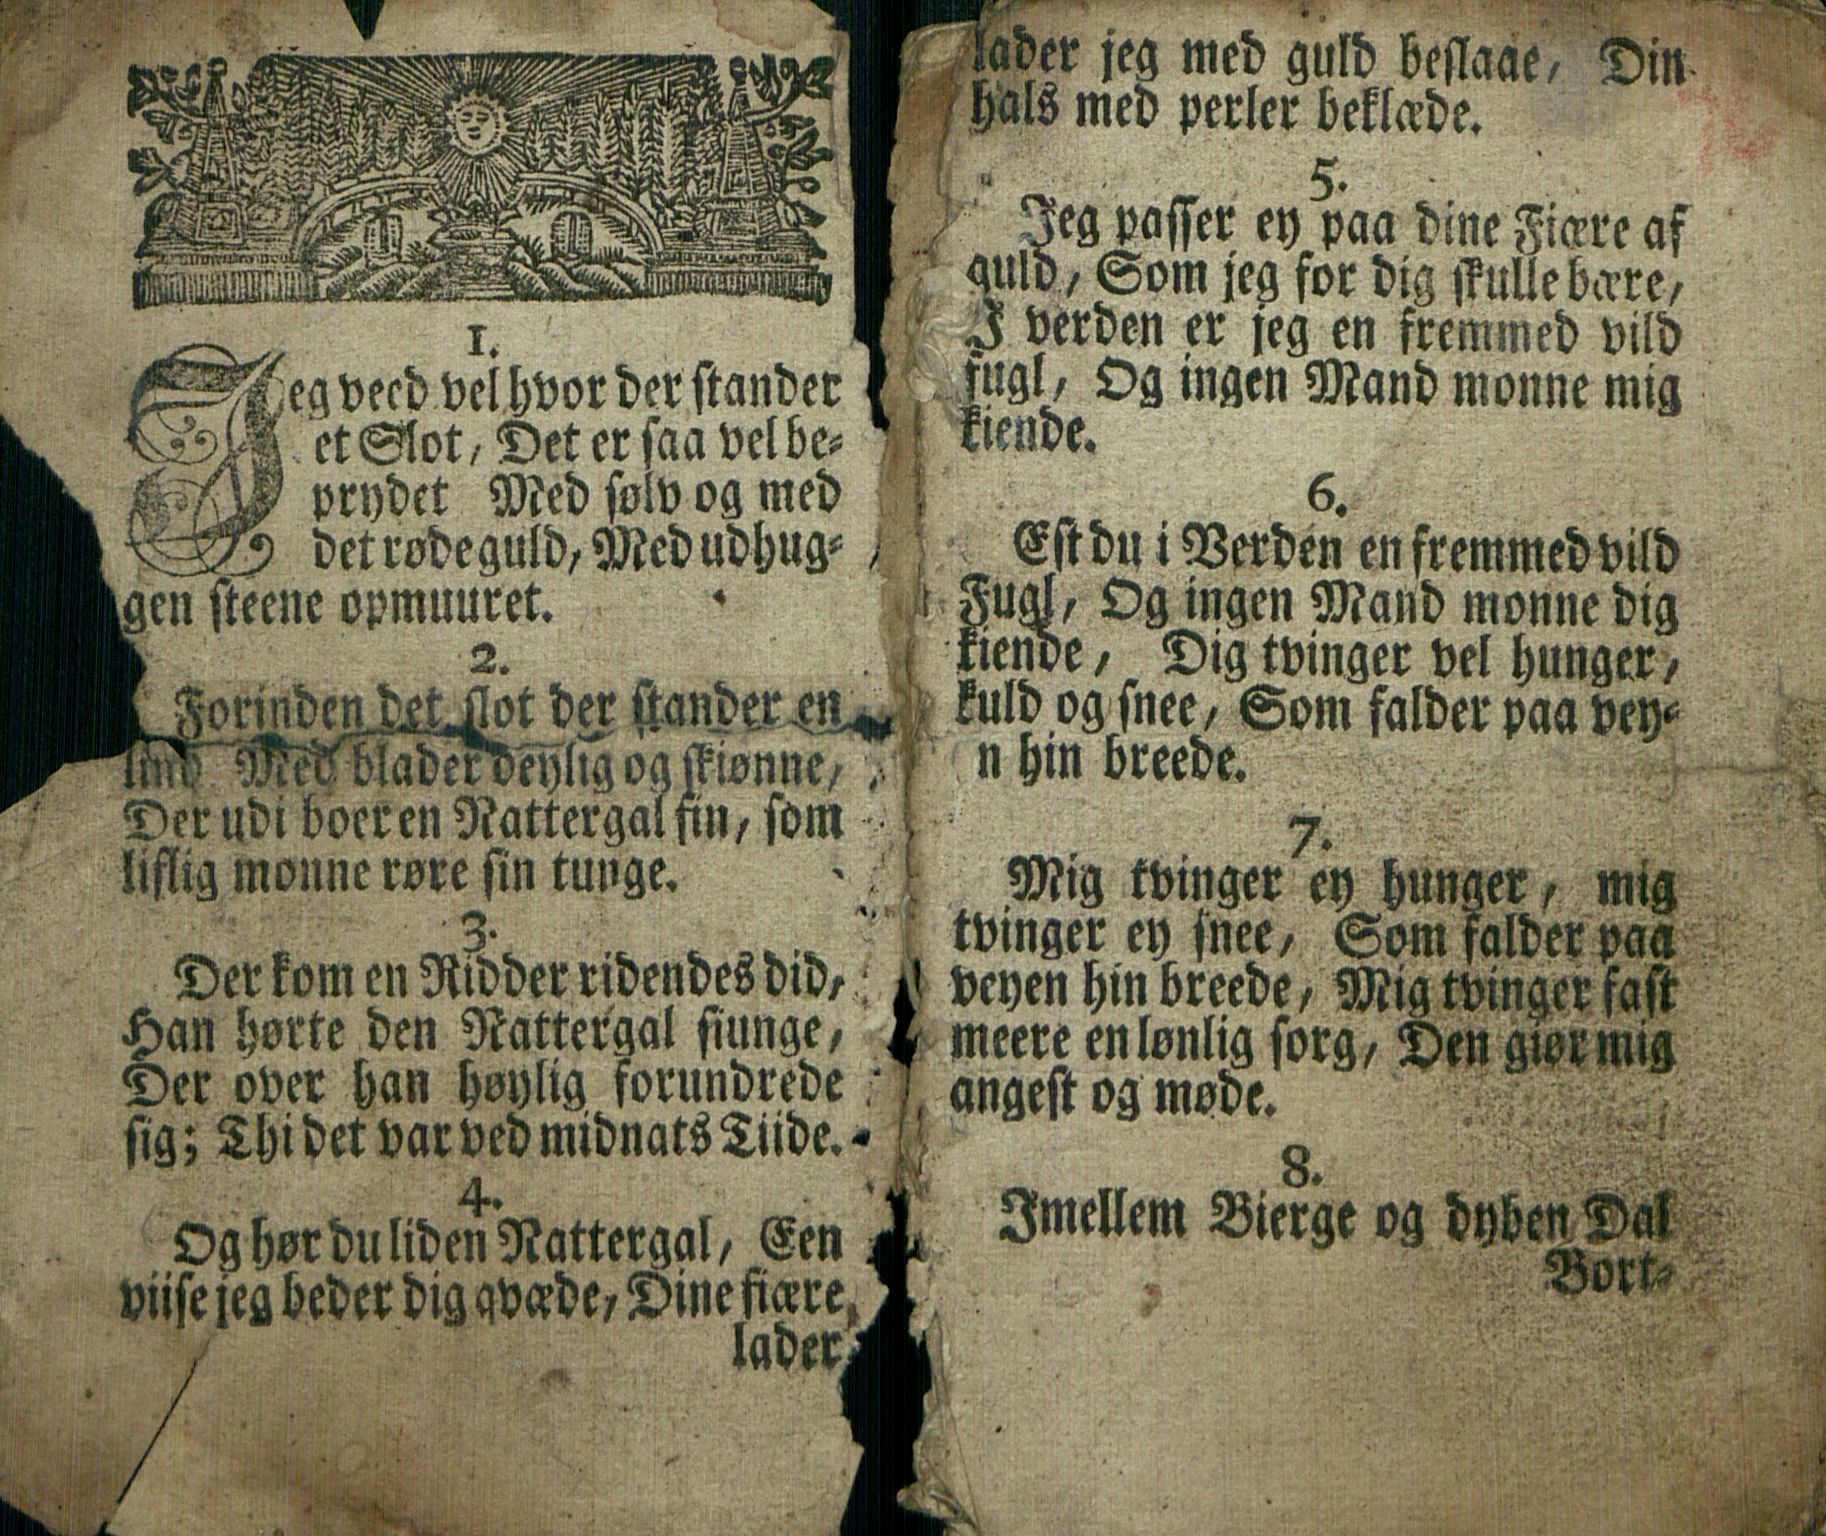 1.
Jeg veed vel hvor der stander
et Slot, Det er saa vel be-
prydet Med sølv og med
det røde guld, Med udhug-
gen steene opmuuret.
2.
Forinden det slot der stander en
lind Med blader deylig og skiønne,
Der udi boer en Nattergal fin, som
liflig monne røre sin tunge.
3.
Der kom en Ridder ridendes did,
Han hørte den Nattergal siunge,
Der over han høylig forundrede
sig; Thi det var ved midnats Tiide.
4.
Og hør du liden Nattergal, Een
viise jeg beder dig qvæde, Dine fiære
lader
lader jeg med guld beslaae, Din
hals med perler beklæde.
5.
Jeg passer ey paa dine Fiære af
guld, Som jeg for dig skulle bære,
I verden er jeg en fremmed vild
fugl, Og ingen Mand monne mig
kiende.
6.
Est du i Verden en fremmed vild
Fugl, Og ingen Mand monne dig
kiende, Dig tvinger vel hunger,
kuld og snee, Som falder paa vey-
n hin breede.
7.
Mig tvinger ey hunger, mig
tvinger ey snee, Som falder paa
veyen hin breede, Mig tvinger fast
meere en lønlig sorg, Den giør mig
angest og møde.
8.
Imellem Bierge og dyben Dal
Bort-